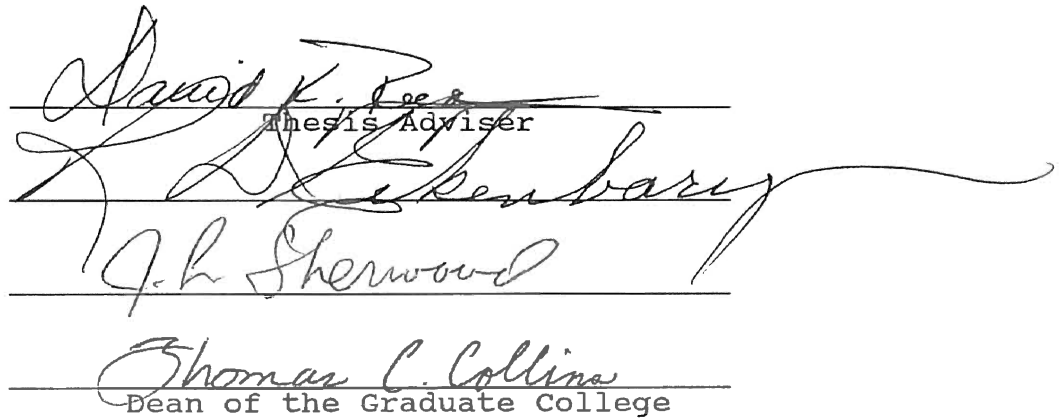 David K. Reed
Thesis Adviser
R D Eikenbary
J. L. Sherwood
Thomas C. Collins
Dean of the Graduate College